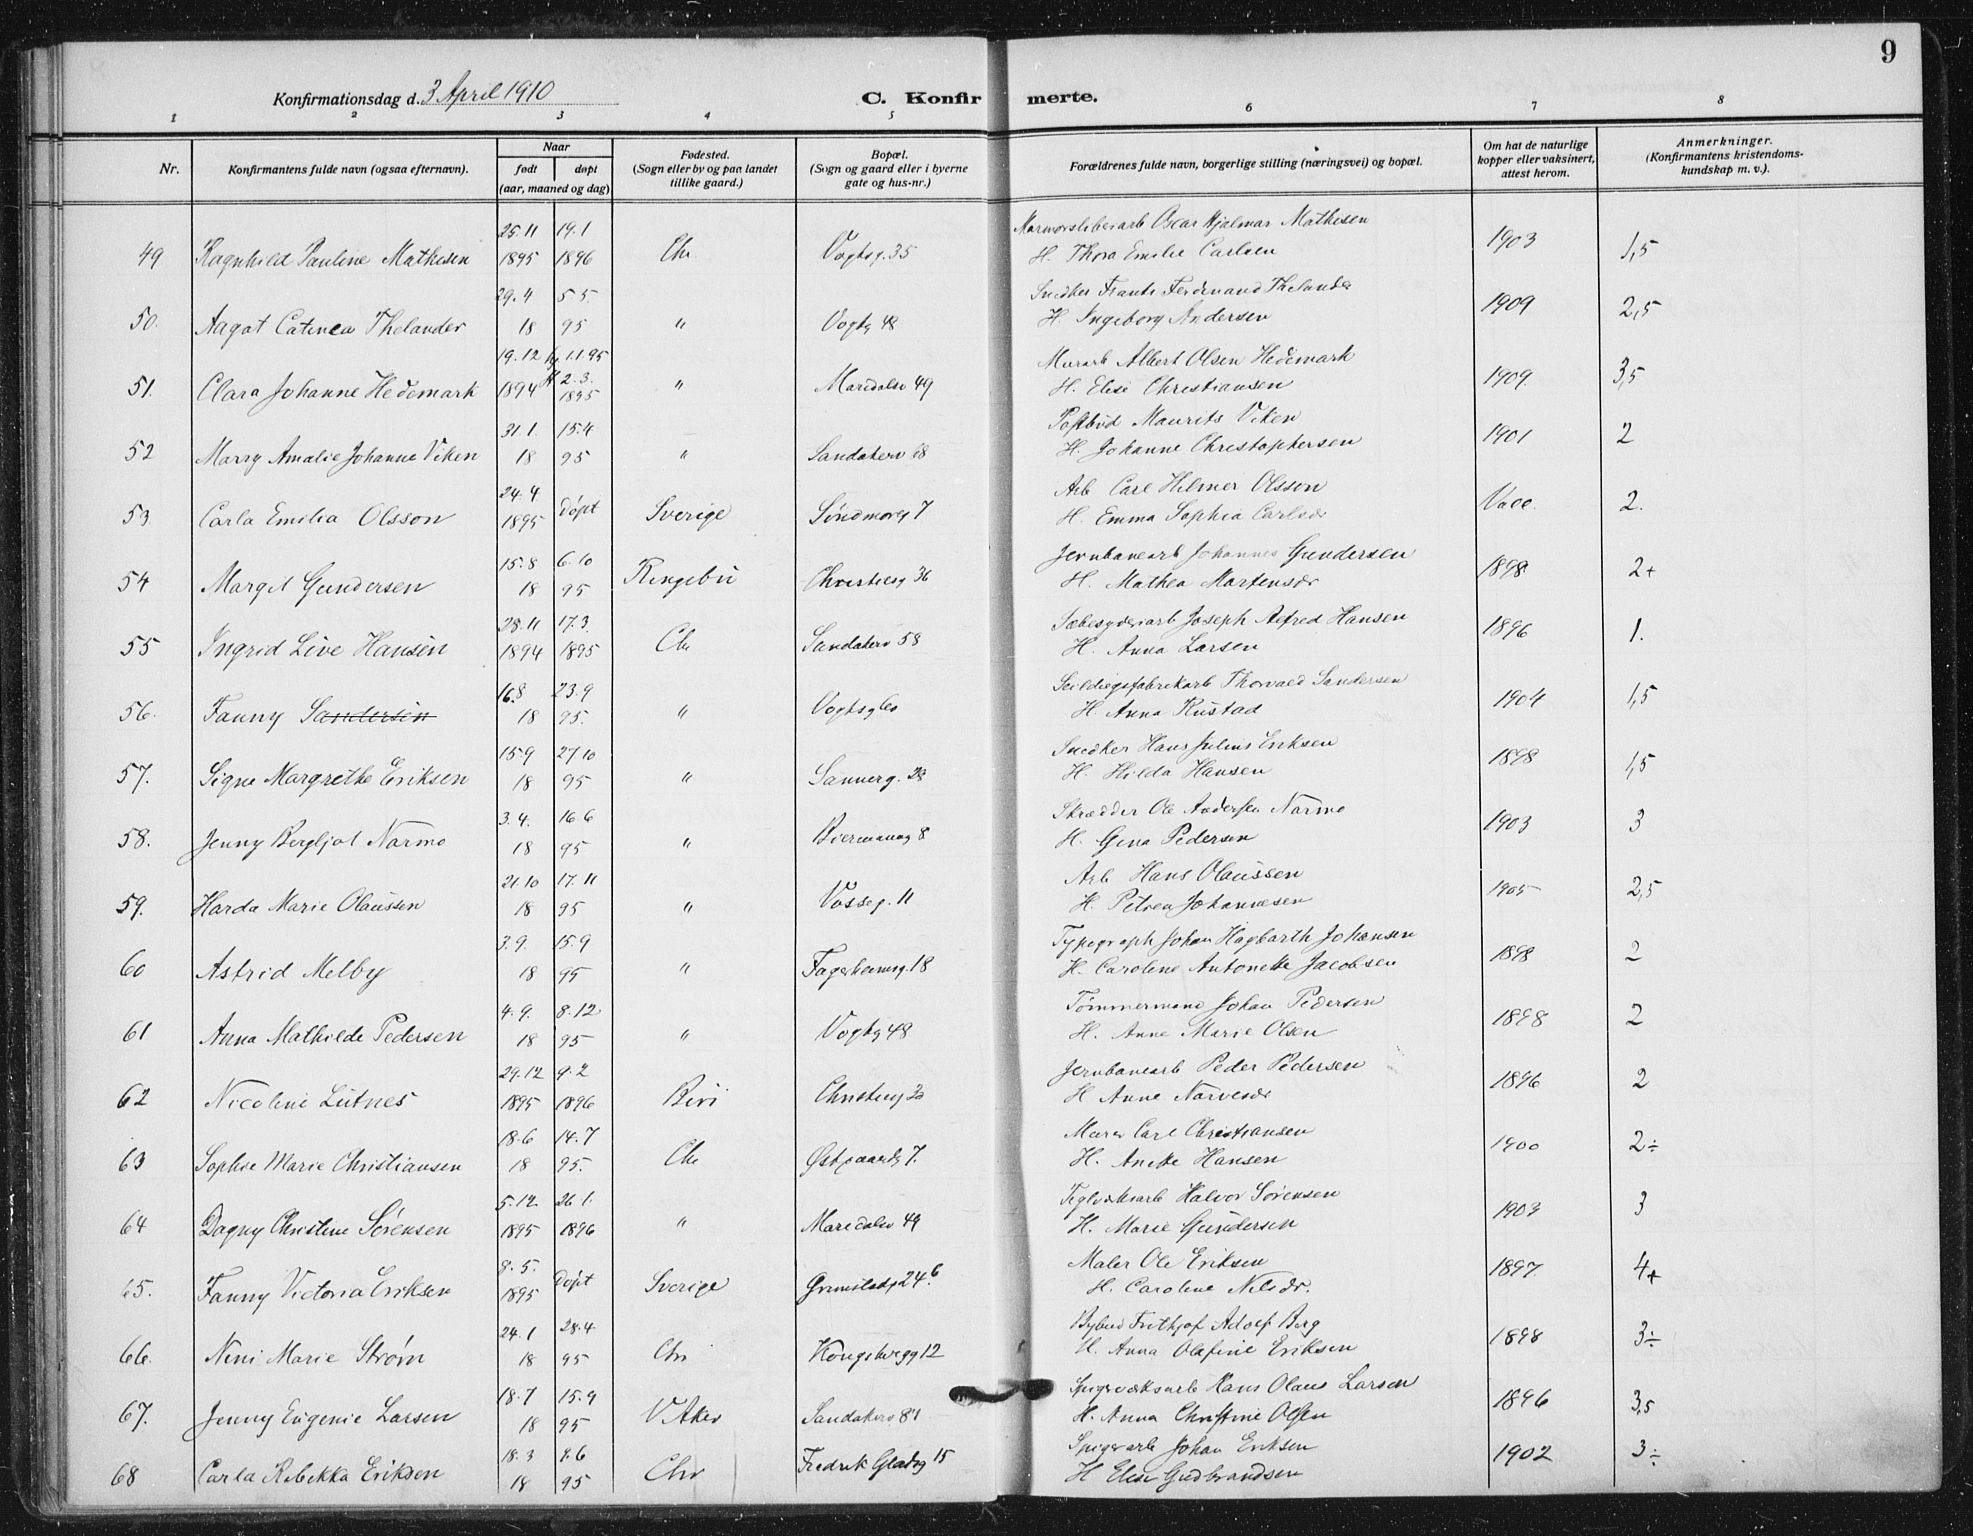 9
Konfirmationsdag d. 3 April 1910
C. Konfir merte.
1 2 3 4 5 6 7 8
Nr.
Konfirmantens fulde navn (ogsaa efternavn).
Naar
født døpt
(aar, maaned og dag)
Fødested.
(Sogn eller by og paa landet
tillike gaard.)
Bopæl.
(Sogn og gaard eller i byerne
gate og hus-nr.)
Forældrenes fulde navn, borgerlige stilling (næringsvei) og bopæl.
Om hat de naturlige
kopper eller vaksinert,
attest herom.
Anmerkninger.
(Konfirmantens kristendoms-
kundskap m. v.).
25.11 19.1 Oscar Hjalmar Mathisen
49 Ragnhild Pauline Mathisen 1895 1896 Chr Vogtsg. 35 H. Thora Emilie Carlsen 1903 1,5
29.4 5.5. Snedker Frants Ferdinand Thelander
50. Aagot Catinca Thelander 18 95 " Vogtg 48 H. Ingeborg Andersen 1909 2,5
19.12 1.1.95 Murarb Albert Olsen Hedemark
51. Clara Johanne Hedemark 1894 2.3. 1895 " Maridalsv 49 H. Elise Christiansen 1909. 3,5
31.1. 15.4 Postbud Maurits Viken
52 Marry Amalie Johanne Viken 18 95 " Sandakerv H. Johanne Christophersen 1901 2
24.4 Arb Carl Hilmer Olsson
53 Carla Emilia Olsson 1895 døpt Sverige Søndmøreg 7 H. Emma Sophia Carlsdr Vacc. 2.
15.8 6.10 Jernbanearb Johannes Gundersen
54 Margit Gundersen 18 95 Ringebu Christiesg 36 H. Mathea Martensdr 1898 2+
28.11 17.3. Sæbesyderiarb Joseph Alfred Hansen
55 Ingrid Live Hansen 1894 1895 Chr Sandakerv 58 H. Anna Larsen 1896 1.
16.8 23.9 Thorvald Sandersen
56. Fanny Sandersen 18 95. " H. Anna Rustad 1904 1,5
15.9 27.10 Snedker Hans Julius Eriksen
57. Signe Margrethe Eriksen 18 95 " Sannerg. 28 H. Hilda Hansen 1898 1,5
3.4. 16.6 Skrædder Ole Andersen Narmo
58. Jenny Bergljot Narmo 18 95 " Biermannsg 8 H. Gina Pedersen 1903 3
21.10 17.11 Arb Hans Olaussen
59. Harda Marie Olaussen 18 95 " Vosseg. 11 H. Petrea Johannesen 1905 2,5
3.9. 15.9 Typograph Johan Hagbarth Johansen
60 Astrid Melby 18 95 " Fagerheimsg. 18 H. Caroline Antonette Jacobsen 1898 2
4.9. 8.12 Tømmermand Johan Pedersen
61 Anna Mathilde Pedersen 18 95 " Vogtg 48 H. Anne Marie Olsen 1898 2
29.12 9.2 Jernbanearb Peder Pedersen
62 Nicoline Lutnes 1895 1896 Biri H. Anne Narvesdr 1896 2
18.6 14.7 Murer Carl Christiansen
63 Sophie Marie Christiansen 18 95. Chr Østgaardsg 7. H. Anette Hansen 1900 2÷
5.12 26.1. Teglverksarb Halvor Sørensen
64 Dagny Christine Sørensen 1895 1896 " Maridalsv 49 H. Marie Gundersen 1903 3
8.5. Maler Ole Eriksen
65. Fanny Victoria Eriksen 1895 Døpt Sverige Grimstadg 24 b H. Caroline Nilsdr. 1897. 4+
24.1 28.4 Bybud Frithjof Adolf Berg
66. Nini Marie Strøm 18 95 Chr Kongsbergg 12 H. Anna Olefine Eriksen 1898 3÷
18.7 15.9 Spigerverksarb Hans Olaus Larsen
67. Jenny Eugenie Larsen 18 95 V Aker Sandakerv 81 H. Anna Christine Olsen 1896 3,5
18.3 Spigerarb Johan Eriksen
68 Carla Rebekka Eriksen 18 95 Chr Fredrik Gladsg 15 H Elise Gudbrandsen 1902 3÷